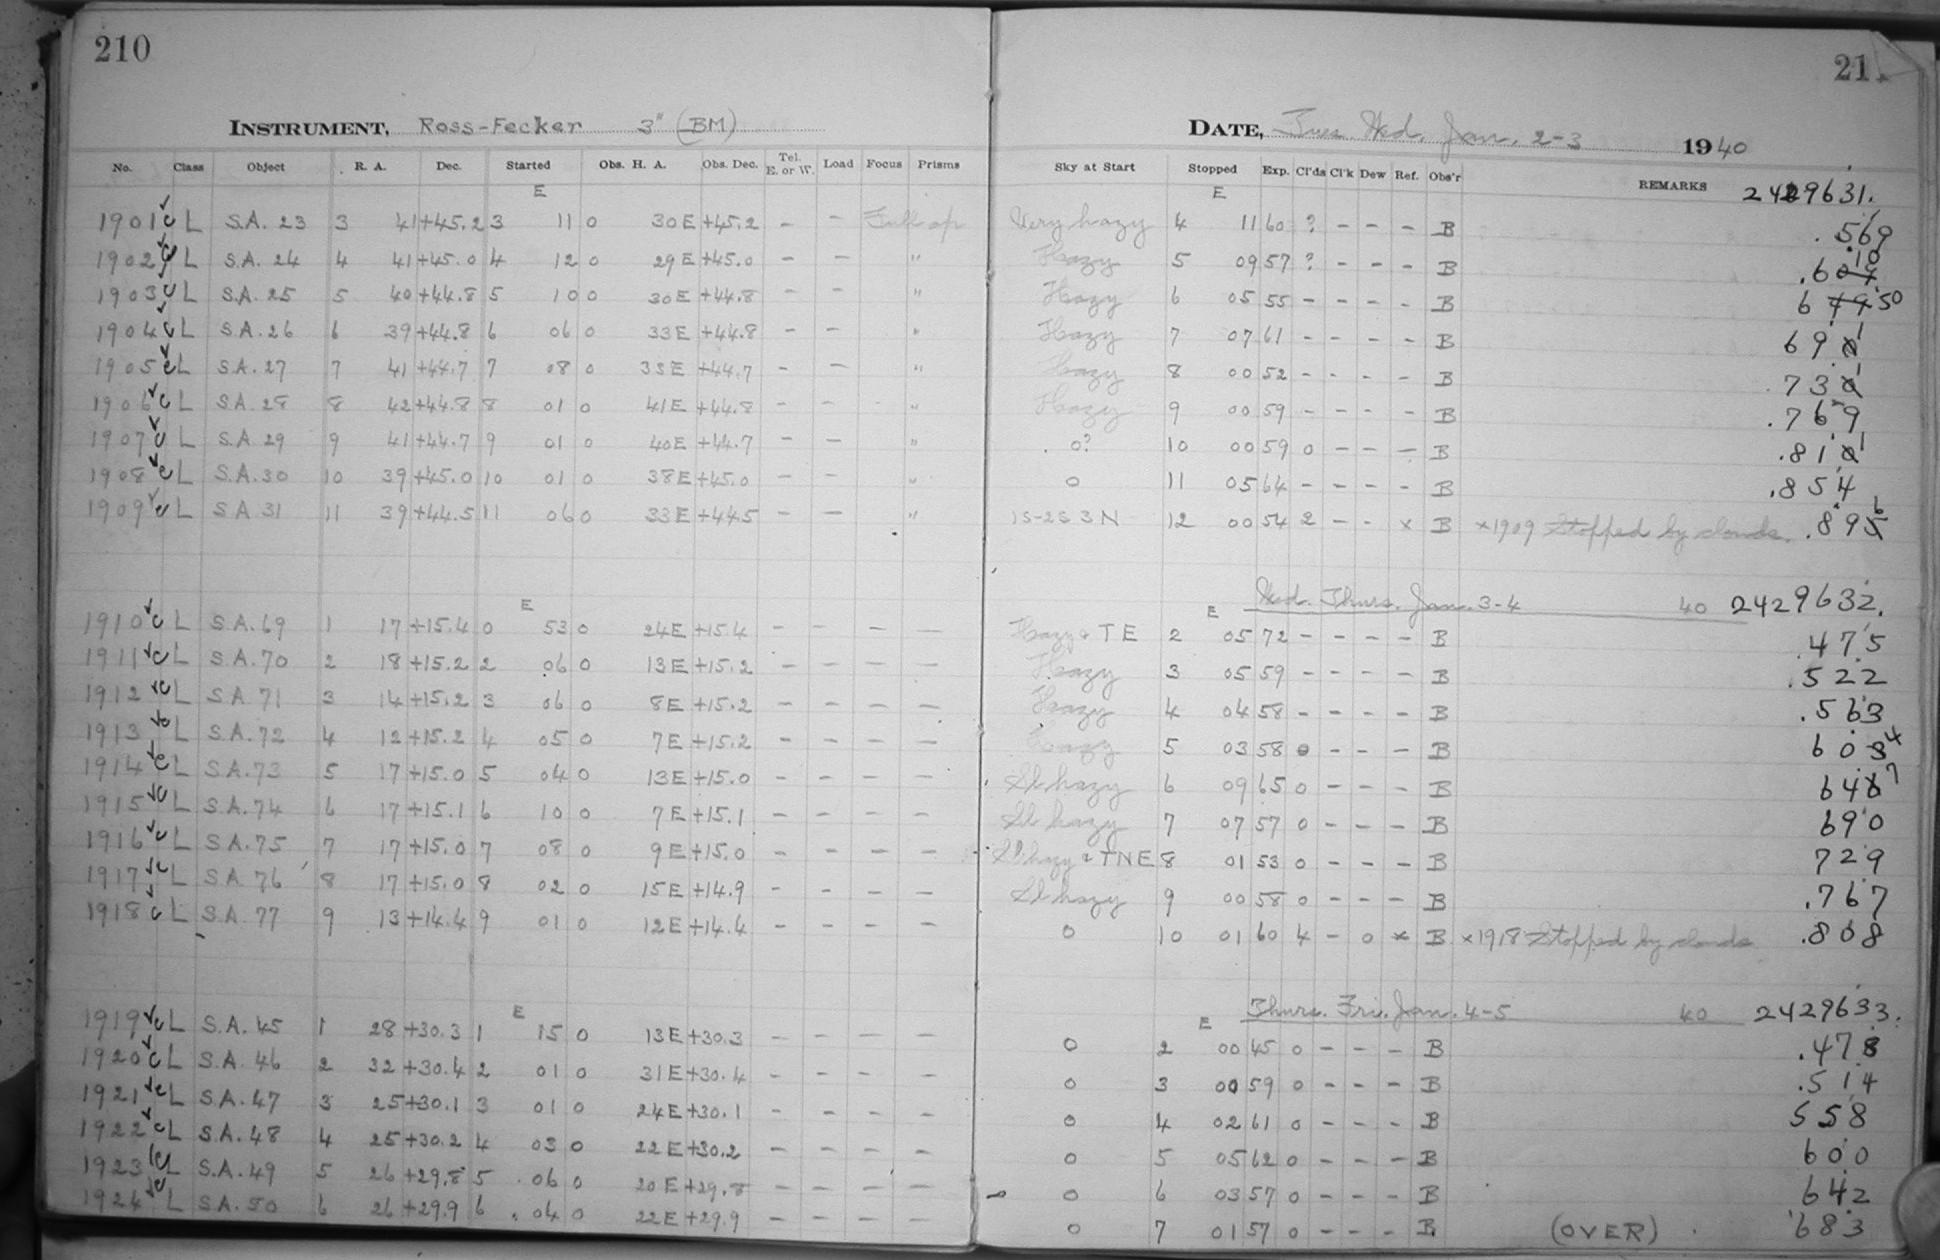 210
INSTRUMENT, Ross-Fecker 3" (BM)
DATE, Tues. Wed. Jan. 2-3 1940
No. Class Object R. A. Dec. Started Obs. H. A. Obs. Dec. Tel. E. or W. Load Focus Prisms Sky at Start Stopped Exp. Cl'ds Cl'k Dew Ref. Obs'r REMARKS 2429631.
E E
1901 c L S.A. 23 3 41 +45.2 3 11 0 30E +45.2 - - Full ap Very hazy 4 11 60 ? - - - B .569
1902 c L S.A. 24 4 41 +45.0 4 12 0 29E +45.0 - - " Hazy 5 09 57 ? - - - B .610
1903 c L S.A. 25 5 40 +44.8 5 10 0 30E +44.8 - - " Hazy 6 05 55 - - - - B 650
1904 c L S.A. 26 6 39 +44.8 6 06 0 33E +44.8 - - " Hazy 7 07 61 - - - - B 691
1905 c L S.A. 27 7 41 +44.7 7 08 0 33E +44.7 - - " Hazy 8 00 52 - - - - B .731
1906 c L S.A. 28 8 42 +44.8 8 01 0 41E +44.8 - - " Hazy 9 00 59 - - - - B .769
1907 c L S.A. 29 9 41 +44.7 9 01 0 40E +44.7 - - " 0? 10 00 59 0 - - - B .811
1908 c L S.A. 30 10 39 +45.0 10 01 0 38E +45.0 - - " 0 11 05 64 - - - - B .854
1909 c L S.A. 31 11 39 +44.5 11 06 0 33E +44.5 - - " 1S-2S 3N 12 00 54 2 - - x B x1909 Stopped by clouds. .896
E E Wed. Thurs. Jan. 3-4 40 2429632.
1910 c L S.A. 69 1 17 +15.4 0 53 0 24E +15.4 - - - - Hazy & TE 2 05 72 - - - - B .475
1911 c L S.A. 70 2 18 +15.2 2 06 0 13E +15.2 - - - - Hazy 3 05 59 - - - - B .522
1912 c L S.A. 71 3 14 +15.2 3 06 0 8E +15.2 - - - - Hazy 4 04 58 - - - - B .563
1913 c L S.A. 72 4 12 +15.2 4 05 0 7E +15.2 - - - - Hazy 5 03 58 0 - - - B 604
1914 c L S.A. 73 5 17 +15.0 5 04 0 13E +15.0 - - - - Sl hazy 6 09 65 0 - - - B 647
1915 c L S.A. 74 6 17 +15.1 6 10 0 7E +15.1 - - - - Sl hazy 7 07 57 0 - - - B 690
1916 c L S.A. 75 7 17 +15.0 7 08 0 9E +15.0 - - - - Sl hazy & TNE 8 01 53 0 - - - B 729
1917 c L S.A. 76 8 17 +15.0 8 02 0 15E +14.9 - - - - Sl hazy 9 00 58 0 - - - B .767
1918 c L S.A. 77 9 13 +14.4 9 01 0 12E +14.4 - - - - 0 10 01 60 4 - 0 x B x1918 Stopped by clouds .808
E E Thurs. Fri. Jan. 4-5 40 2429633.
1919 c L S.A. 45 1 28 +30.3 1 15 0 13E +30.3 - - - - 0 2 00 45 0 - - - B .478
1920 c L S.A. 46 2 32 +30.4 2 01 0 31E +30.4 - - - - 0 3 00 59 0 - - - B .514
1921 c L S.A. 47 3 25 +30.1 3 01 0 24E +30.1 - - - - 0 4 02 61 0 - - - B 558
1922 c L S.A. 48 4 25 +30.2 4 03 0 22E +30.2 - - - - 0 5 05 62 0 - - - B 600
1923 c L S.A. 49 5 26 +29.8 5 06 0 20E +29.8 - - - - 0 6 03 57 0 - - - B 642
1924 c L S.A. 50 6 26 +29.9 6 04 0 22E +29.9 - - - - 0 7 01 57 0 - - - B (OVER) 683